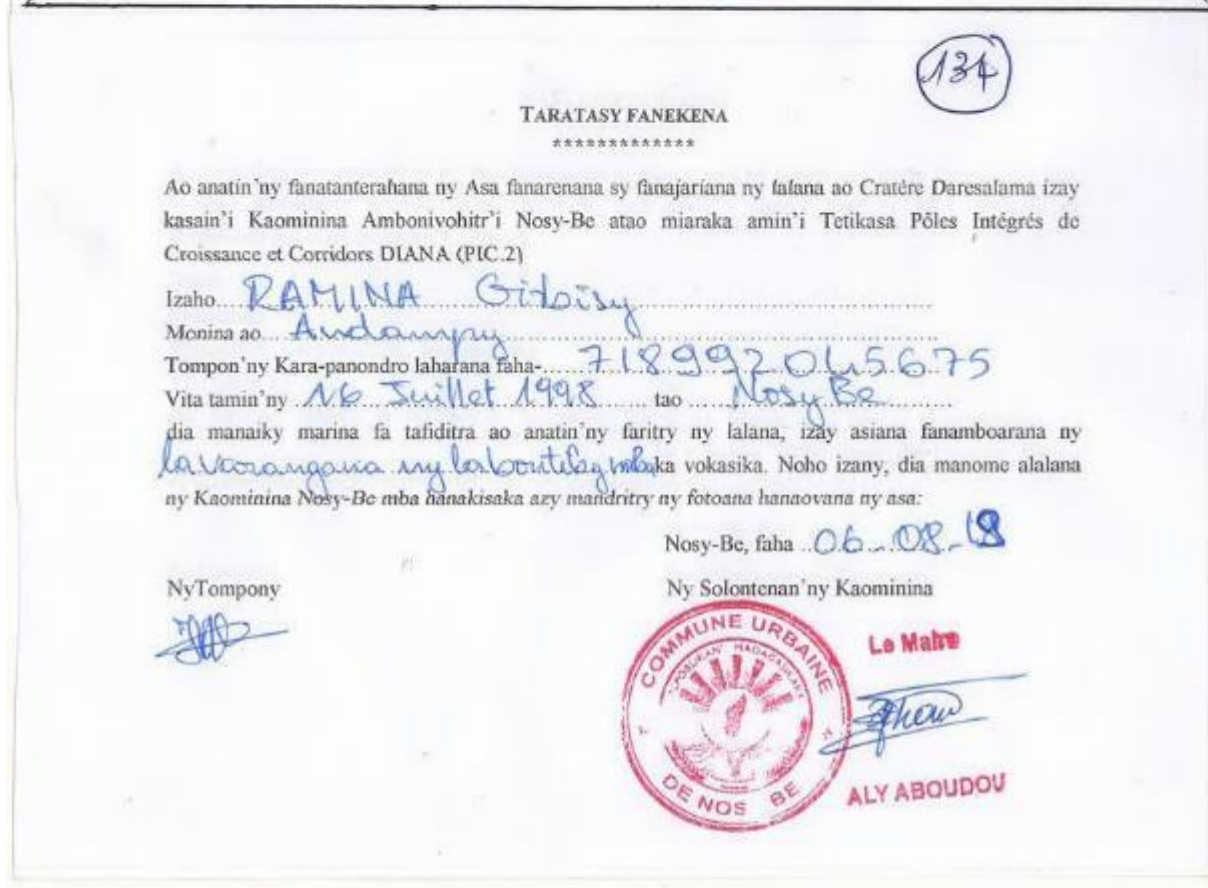 134
TARATASY FANEKENA
*************
Ao anatin'ny fanatanterahana ny Asa fanarenana sy fanajariana ny lalana ao Cratère Daresalama izay
kasain'i Kaominina Ambonivohitr'i Nosy-Be atao miaraka amin'i Tetikasa Pôles Intégrés de
Croissance et Corridors DIANA (PIC.2)
Izaho RAMINA Gitoisy
Monina ao Andampy
Tompon'ny Kara-panondro laharana faha- 718992045675
Vita tamin'ny 16 Juillet 1998 tao Nosy Be
dia manaiky marina fa tafiditra ao anatin'ny faritry ny lalana, izay asiana fanamboarana ny
lavarangana ny vokasika. Noho izany, dia manome alalana
ny Kaominina Nosy-Be mba hanakisaka azy mandritry ny fotoana hanaovana ny asa:
Nosy-Be, faha 06-08-18
NyTompony Ny Solontenan'ny Kaominina
COMMUNE URBAINE
DE NOS BE
Le Maire
ALY ABOUDOU